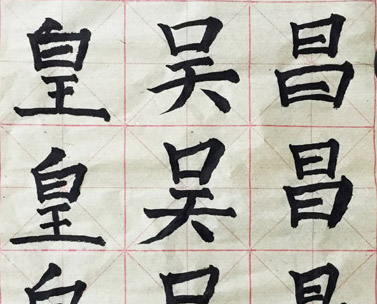 昌昌
吴吴
皇皇